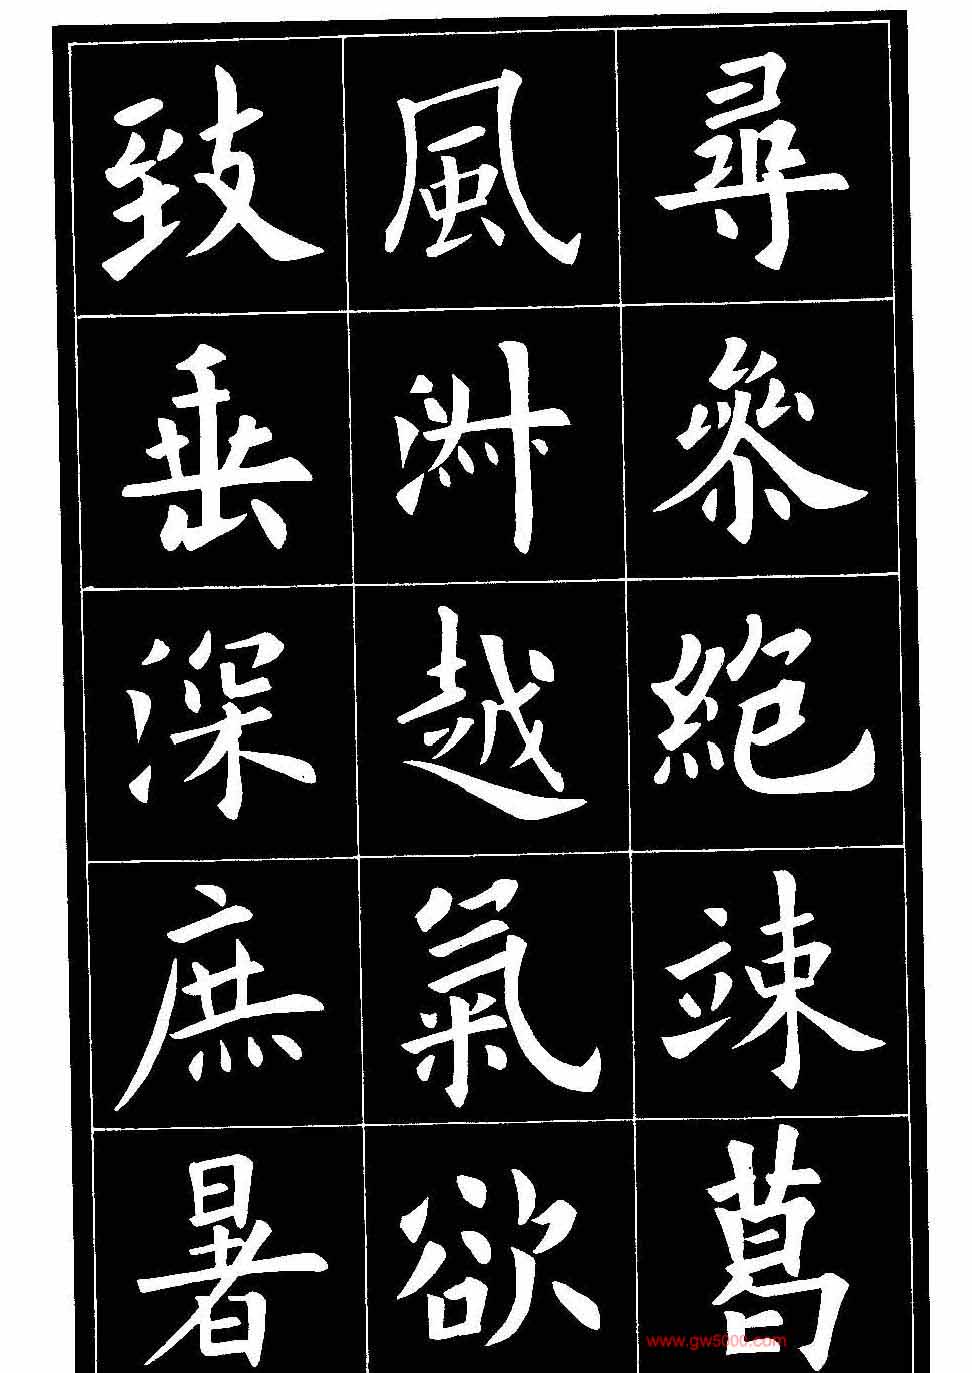 尋參絶竦葛
風淵越氣欲
致垂深庶暑
www.gw5000.com